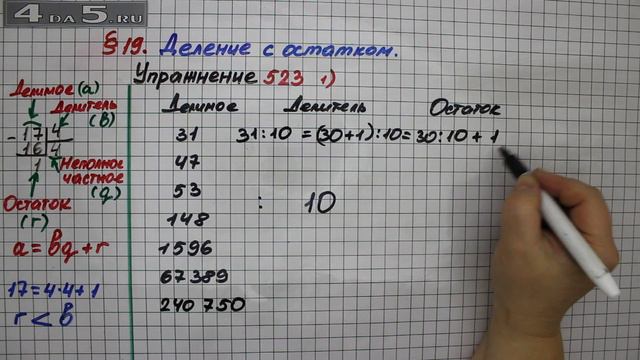 4DA5.RU
§ 19. Деление с остатком.
Упражнение 523 1)
Делимое (a)
Делитель (b)
17 4
- 16 4
1
Неполное частное (q)
Остаток (r)
a = bq + r
17 = 4·4 + 1
r < b
Делимое Делитель Остаток
31 31 : 10 = (30+1) : 10 = 30 : 10 + 1
47
53
: 10
148
1596
67389
240 750